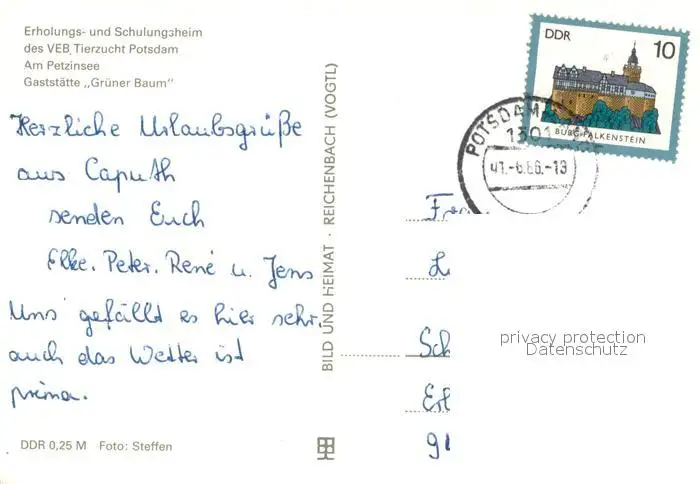 Erholungs- und Schulungsheim
des VEB Tierzucht Potsdam
Am Petzinsee
Gaststätte „Grüner Baum"
Herzliche Urlaubsgrüße
aus Caputh
senden Euch
Elke, Peter, René u. Jens
Uns gefällt es hier sehr,
auch das Wetter ist
prima.
DDR 0,25 M Foto: Steffen
BILD UND HEIMAT · REICHENBACH (VOGTL)
DDR 10
BURG FALKENSTEIN
POTSDAM
1501
-6.86.-13
privacy protection
Datenschutz
Sch